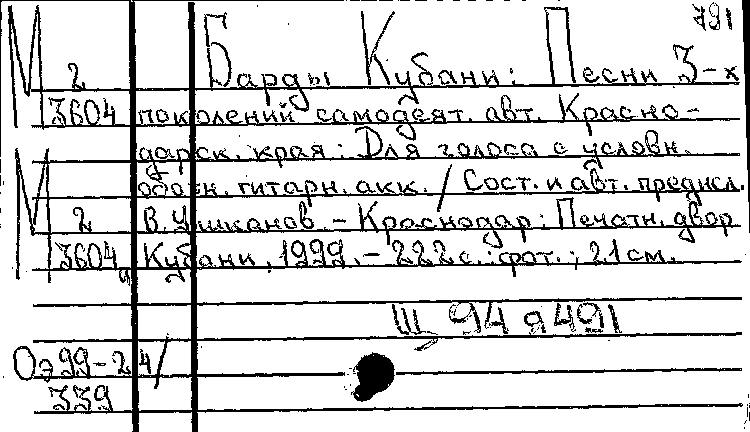 791
М 2 Барды Кубани: Песни 3-х
3604 поколений самодеят. авт. Красно-
дарск. края: Для голоса с условн.
обозн. гитарн. акк. / Сост. и авт. предисл.
М 2 В. Ушканов. - Краснодар: Печатн. двор
3604а Кубани, 1999. - 222 с.: фот.; 21 см.
Щ 94 я 491
Оэ 99-24/
339